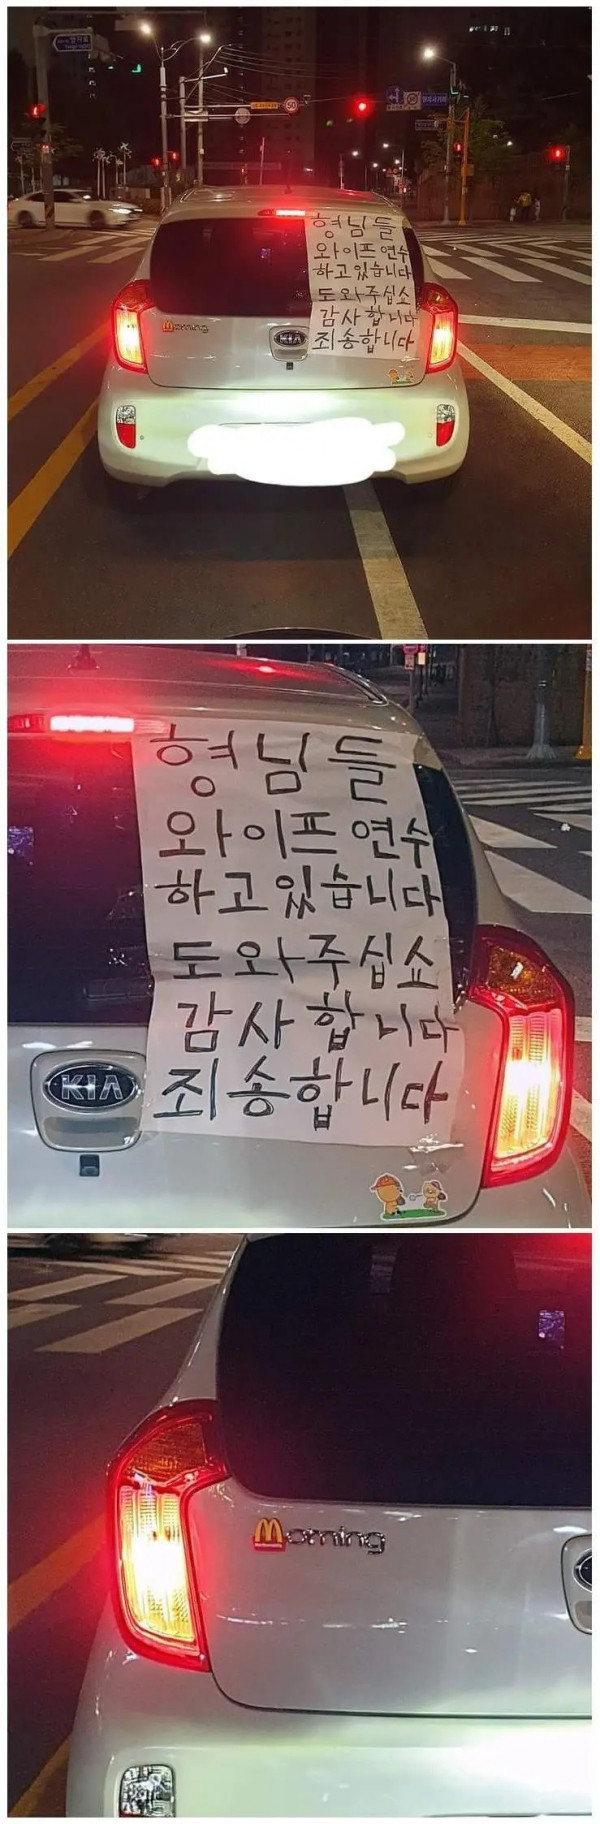 50
형님들
와이프 연수
하고있습니다
도와주십쇼
감사합니다
죄송합니다
morning
KIA
형님들
와이프 연수
하고있습니다
도와주십쇼
감사합니다
죄송합니다
KIA
Morning